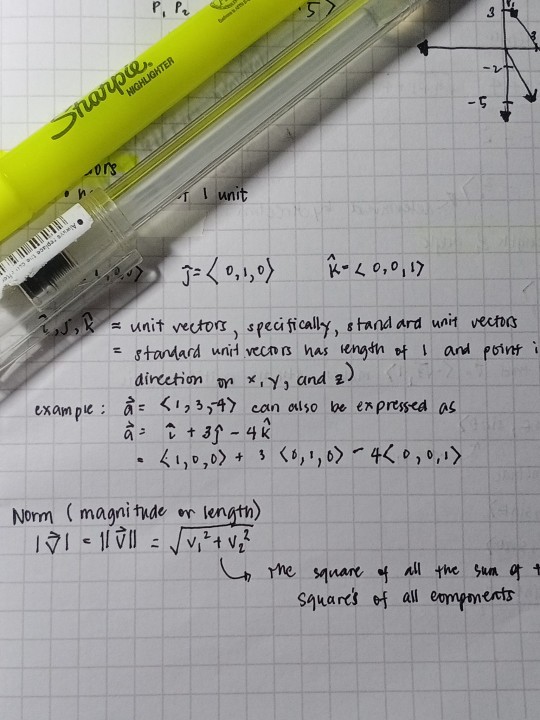 P₁ P₂ 5⟩
3
3
-2
-5
Sharpie.
HIGHLIGHTER
1 unit
ĵ = ⟨ 0,1,0⟩ k̂ = ⟨ 0,0,1⟩
î, ĵ, k̂ = unit vectors, specifically, standard unit vectors
= standard unit vectors has length of 1 and point i
direction on x, y, and z)
example: a⃗ = ⟨1,3,-4⟩ can also be expressed as
a⃗ = î + 3ĵ - 4k̂
= ⟨1,0,0⟩ + 3 ⟨0,1,0⟩ - 4⟨0,0,1⟩
Norm (magnitude or length)
|v⃗| = ||v⃗|| = √v₁² + v₂²
↳ The square of all the sum of t
square's of all components